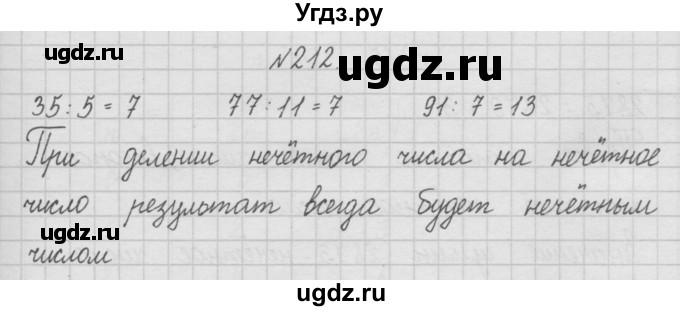 Угдз.ру
№212.
ugdz.ru
ugdz.ru
35:5=7 77:11=7 91:7=13
ugdz.ru
При делении нечётного числа на нечётное
число результат всегда будет нечётным
ugdz.ru
числом
ugdz.ru